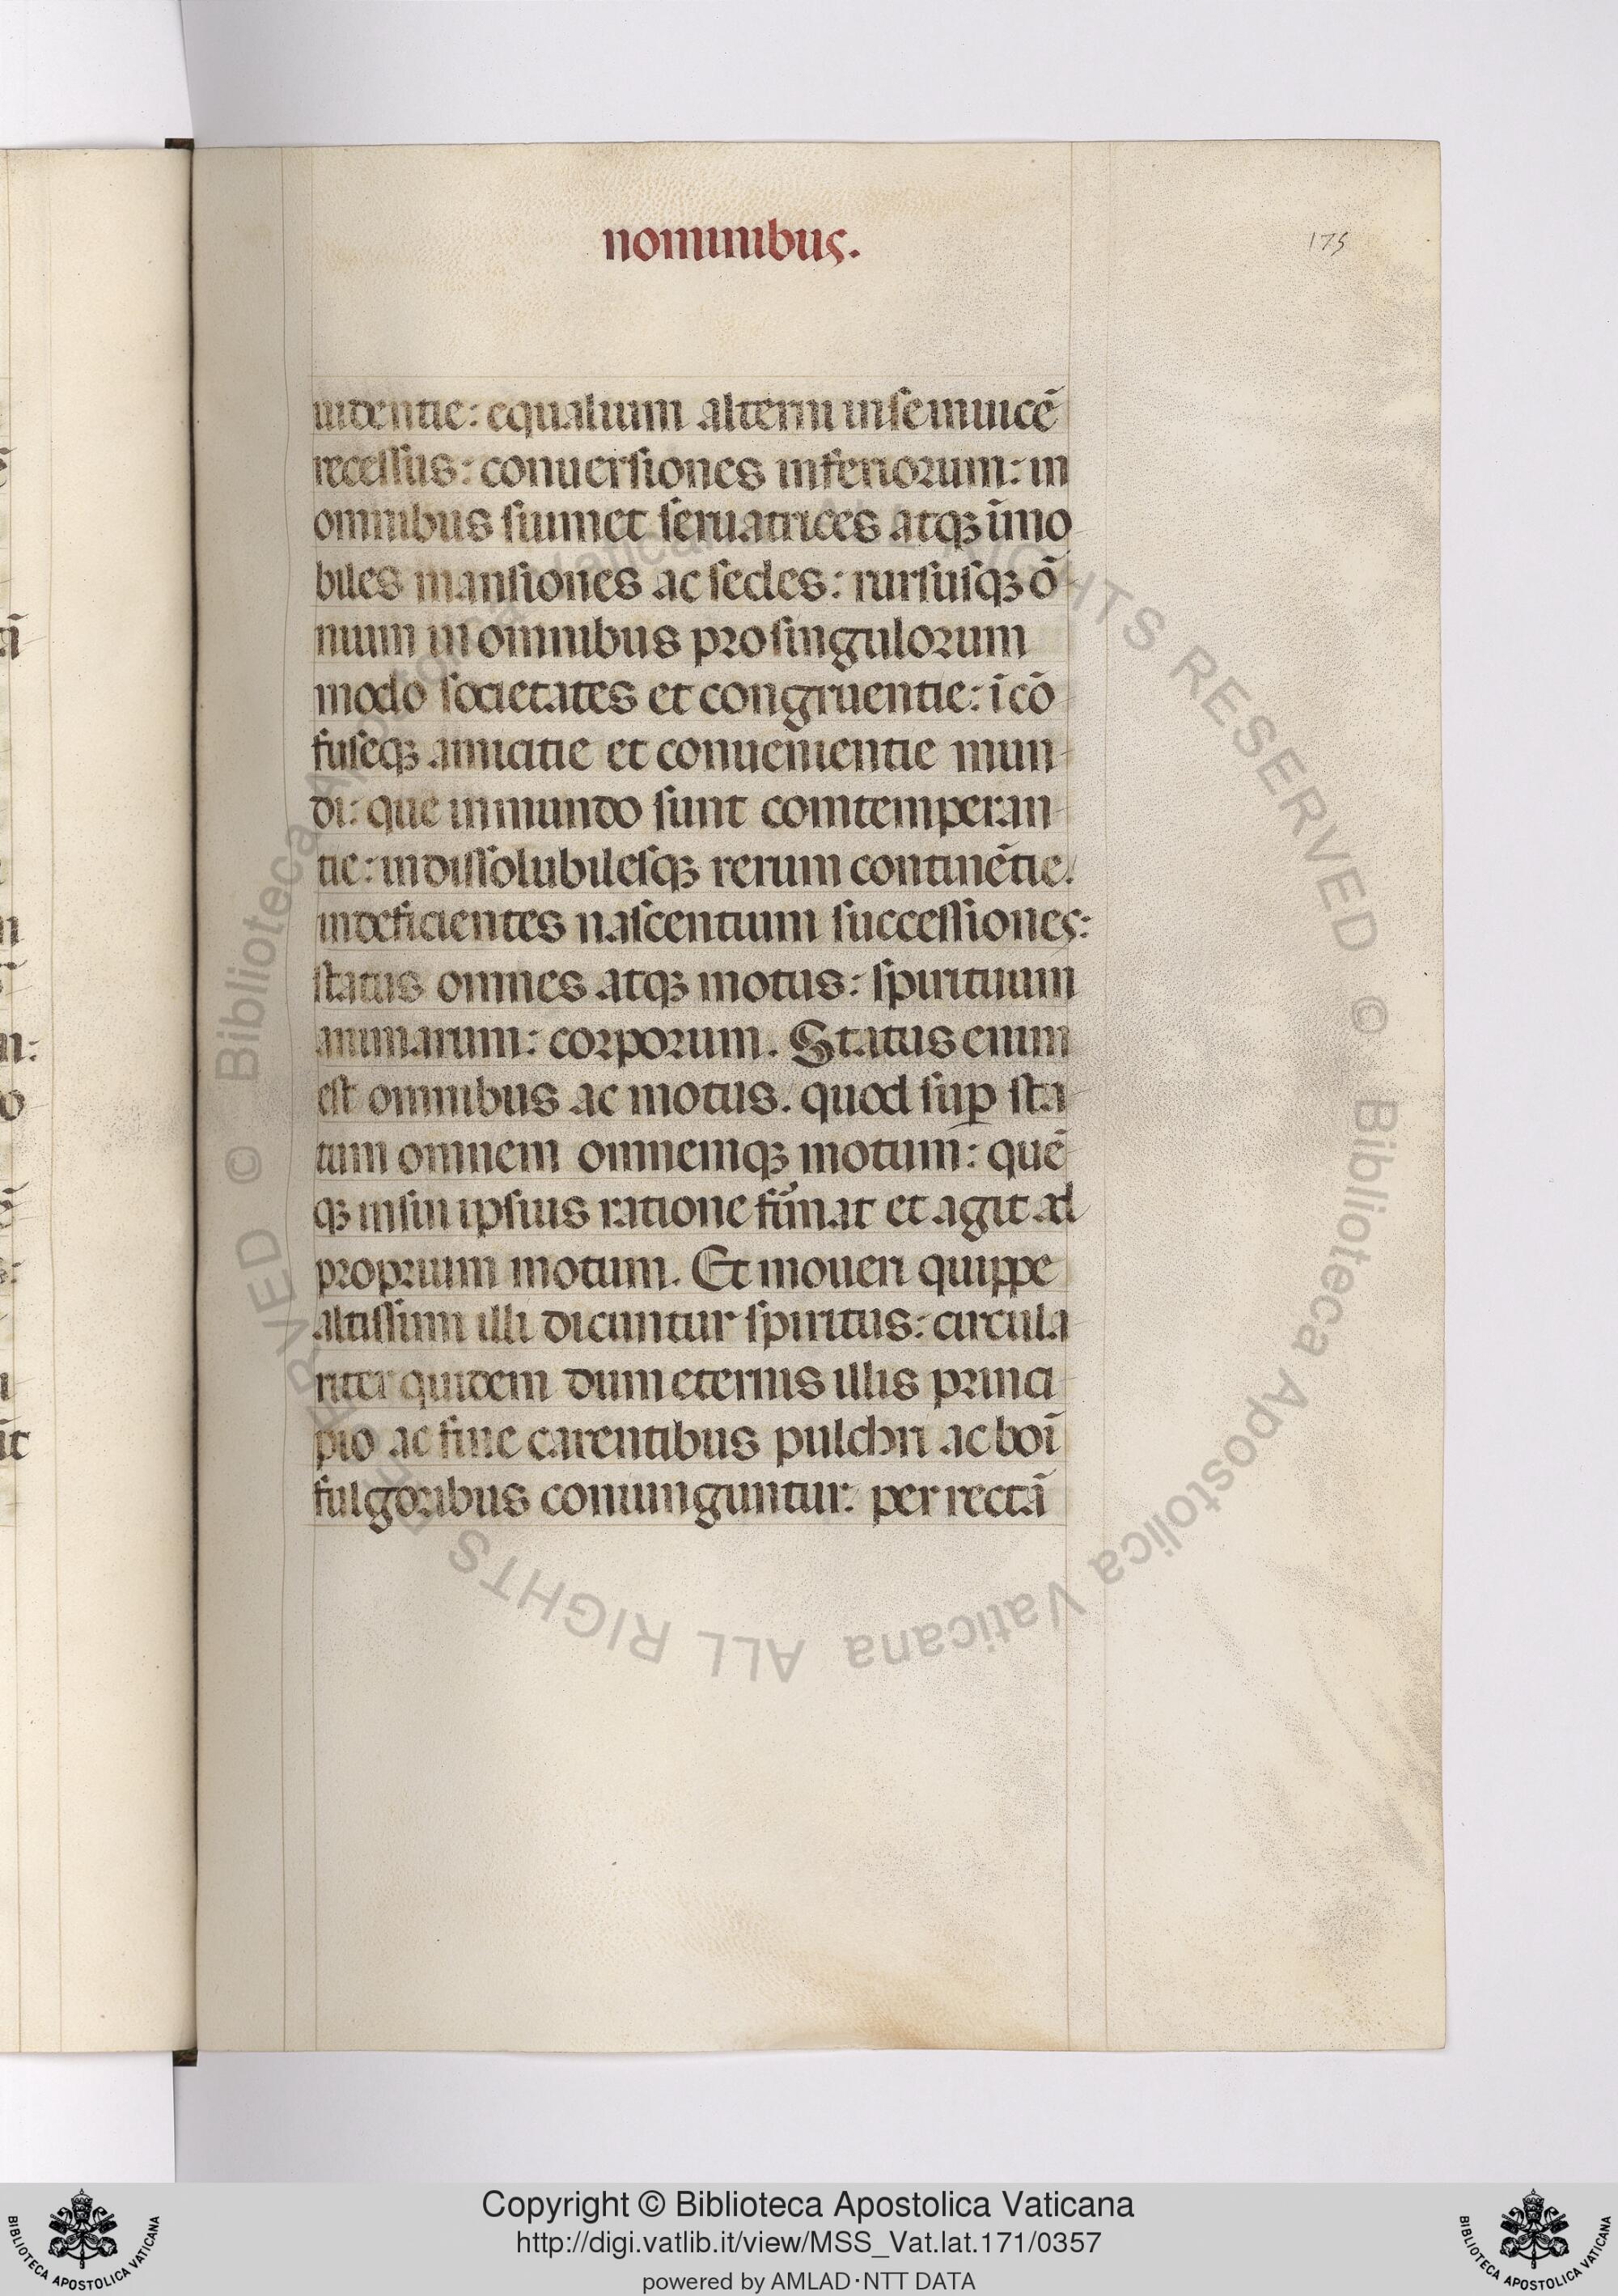 nominibus.
175
uidentie: equalium alterni inseinuicē
recessus: conuersiones inferiorum: in
omnibus suimet seruatrices atqꝫ īmo
biles mansiones ac sedes: rursusqꝫ ō
nium in omnibus pro singulorum
modo societates et congruentie: īcō
fuseqꝫ amicitie et conuenientie mun
di: que in mundo sunt comtemperan
tie: indissolubilesqꝫ rerum continētie.
indeficientes nascentium successiones:
status omnes atqꝫ motus: spirituum
animarum: corporum. Status enim
est omnibus ac motus. quod suꝑ sta
tum omnem omnemqꝫ motum: quē
qꝫ in sui ipsius ratione fūmat et agit ad
proprium motum. Et moueri quippe
altissimi illi dicuntur spiritus: circula
riter quidem dum eternis illis princi
pio ac fine carentibus pulchri ac boī
fulgoribus coniunguntur: per rectā
Copyright © Biblioteca Apostolica Vaticana
http://digi.vatlib.it/view/MSS_Vat.lat.171/0357
powered by AMLAD·NTT DATA
BIBLIOTECA APOSTOLICA VATICANA
BIBLIOTECA APOSTOLICA VATICANA
© Biblioteca Apostolica Vaticana ALL RIGHTS RESERVED
© Biblioteca Apostolica Vaticana ALL RIGHTS RESERVED